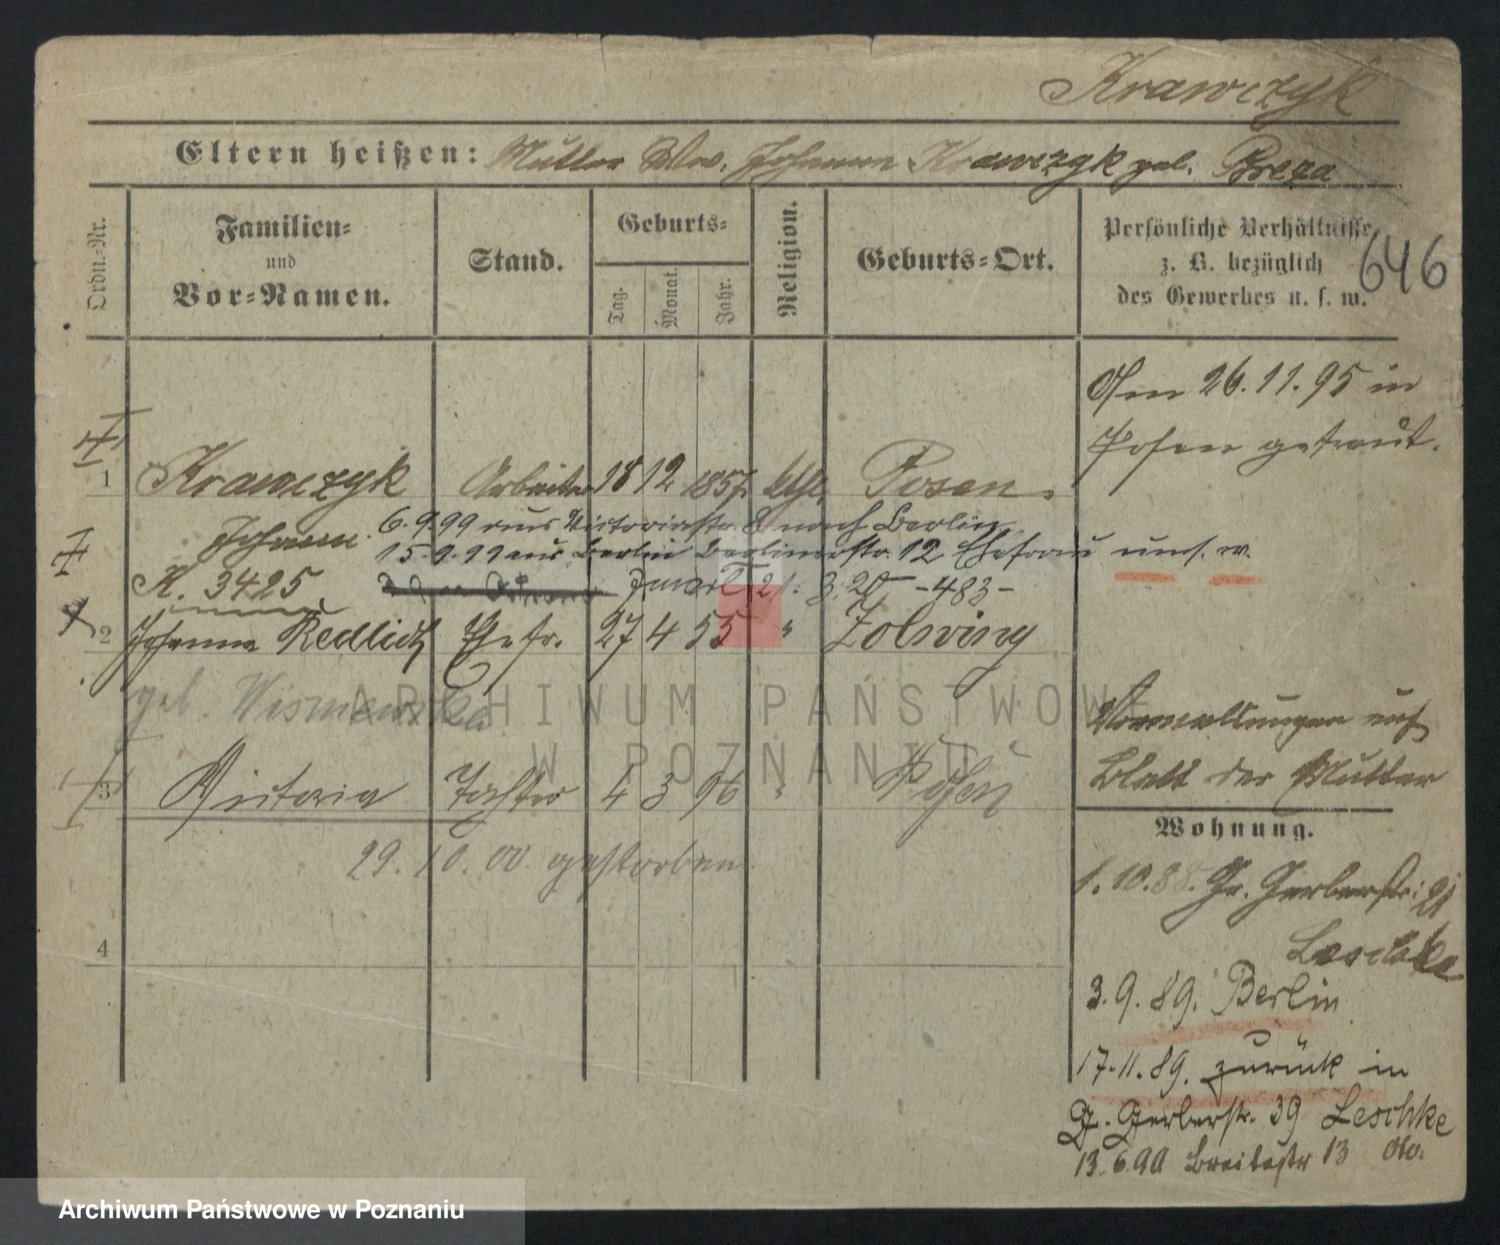 Krawczyk
Eltern heißen: Mutter Ww. Johanna Krawczyk geb. Breza
Ordn.-Nr.
Familien-
und
Vor-Namen.
Stand.
Geburts-
Tag.
Monat.
Jahr.
Religion.
Geburts-Ort.
Persönliche Verhältnisse
z. B. bezüglich
des Gewerbes u. s. w.
646
Am 26.11.95 in
Posen getraut.
1 Krawczyk Arbeiter 18 12 1857 kth. Posen.
Johann. 6.9.99 aus Victoriastr. 8 nach Berlin
15.9.99 aus Berlin Berlinerstr. 12 Ehefrau
K. 3425. 21. 3. 20 -483-
2 Johanna Redlich Ehefr. 27 4 55 "
geb.
3 Victoria Tochter 4 3 96 " Posen
29.10.00 gestorben
4
auf
Blatt der Mutter
Wohnung.
1.10.88. Gr. Gerberstr. 21
Leschke
3.9.89. Berlin
17.11.89. zurück in
G. Gerberstr. 39 Leschke
13.6.90 Breitestr 13
ARCHIWUM PAŃSTWOWE
W POZNANIU
Archiwum Państwowe w Poznaniu